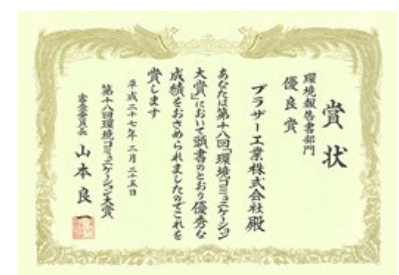 賞状
環境報告書部門
優良賞
ブラザー工業株式会社殿
あなたは第十八回「環境コミュニケーション
大賞」において頭書のとおり優秀な
成績をおさめられましたのでこれを
賞します
平成二十七年二月二十五日
第十八回環境コミュニケーション大賞
審査委員長 山本良一